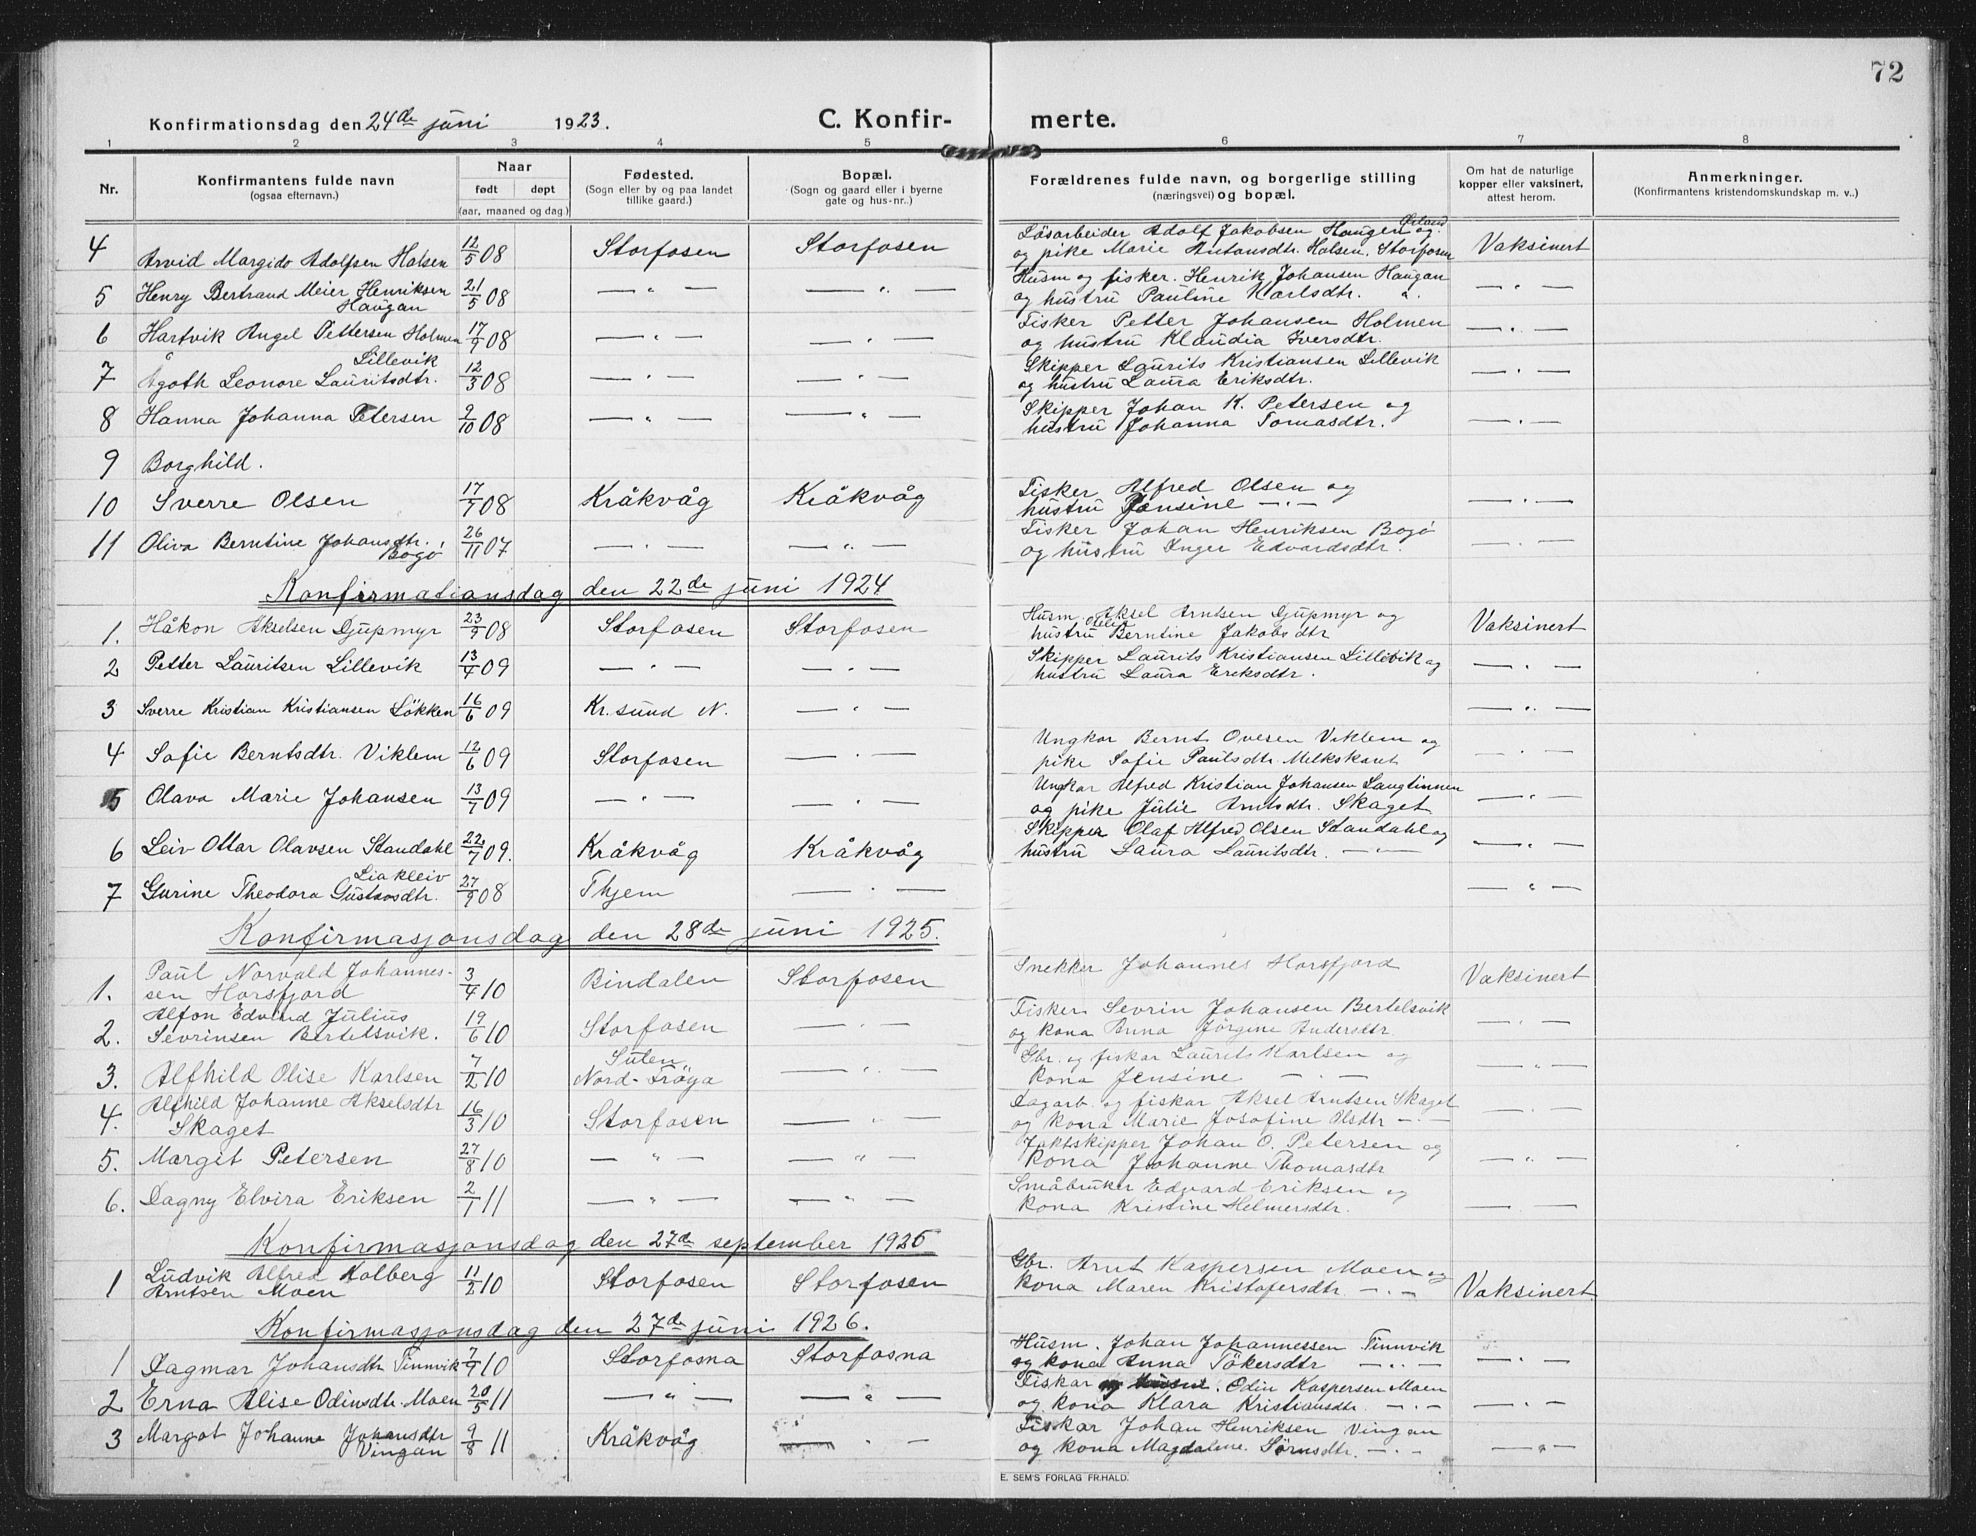 72
Konfirmationsdag den 24de juni 1923. C. Konfir- merte.
1 2 3 4 5 6 7 8
Nr. Konfirmantens fulde navn (ogsaa efternavn.) Naar født døpt (aar, maaned og dag.) Fødested. (Sogn eller by og paa landet tillike gaard.) Bopæl. (Sogn og gaard eller i byerne gate og hus-nr..) Forældrenes fulde navn, og borgerlige stilling (næringsvei) og bopæl. Om hat de naturlige kopper eller vaksinert, attest herom. Anmerkninger. (Konfirmantens kristendomskundskap m. v..)
Ørland
Løsarbeider Adolf Jakobsen Haugen og
4 Arvid Margido Adolfsen Halsen 12/5 08 Storfosen Storfosen og pike Marie Antonsdtr. Halsen. Storfosen Vaksinert
5 Henry Bertrand Meier Henriksen 21/5 08 — " — — " — Husm og fisker. Henrik Johansen Haugan — " —
Haugan og hustru Pauline Karlsdtr. "
6 Hartvik Angel Pettersen Holmen 17/9 08 — " — — " — Fisker Petter Johansen Holmen — " —
og hustru Klaudia Iversdtr.
Lillevik Skipper Laurits Kristiansen Lillevik
7 Ågoth Leonore Lauritsdtr. 12/3 08 — " — — " — og hustru Laura Eriksdtr. — " —
8 Hanna Johanna Petersen 2/10 08 — " — — " — Skipper Johan K. Petersen og — " —
hustru Johanna Tomasdtr.
9 Borghild.
10 Sverre Olsen 17/7 08 Kråkvåg Kråkvåg Fisker Alfred Olsen og — " —
hustru Jensine — " —
11 Oliva Berntine Johansdtr. 26/11 07 — " — — " — Fisker Johan Henriksen Bogö — " —
Bogö og hustru Inger Edvardsdtr.
Konfirmationsdag den 22de juni 1924
1. Håkon Akselsen Djupmyr 23/9 08 Storfosen Storfosen Husm. Aksel Arntsen Djupmyr og Vaksinert
hustru Berntine Jakobsdtr
2 Petter Lauritsen Lillevik 13/4 09 — " — — " — Skipper Laurits Kristiansen Lillevik og — " —
hustru Laura Eriksdtr.
3 Sverre Kristian Kristiansen Lökken 16/6 09 Kr.sund N. — " — — " —
4 Sofie Berntsdtr. Viklem 12/6 09 Storfosen — " — Ungkar Bernt Ovesen Viklem og — " —
pike Sofie Paulsdtr. Melkskaut
5 Olava Marie Johansen 13/7 09 — " — — " — Ungkar Alfred Kristian Johansen Langtinnen — " —
og pike Julie Arntsdtr. Skaget
6 Leiv Ottar Olavsen Standahl 22/7 09. Kråkvåg Kråkvåg Skipper Olaf Alfred Olsen Standahl og — " —
hustru Laura Lauritsdtr. — " —
Liakleiv
7 Gurine Theodora Gustavsdtr. 27/9 08 Thjem — " — — " —
Konfirmasjonsdag den 28de juni 1925.
1. Paul Norvald Johannes- 3/4 10 Bindalen Storfosen Snekker Johannes Horsfjord Vaksinert
sen Horsfjord
2. Alfon Edvind Julius 19/6 10 Storfosen — " — Fisker Sevrin Johansen Bertelsvik — " —
Sevrinsen Bertelsvik. og kona Anna Jörgine Andersdtr.
3. Alfhild Olise Karlsen 7/2 10 Sulen — " — Gbr. og fiskar Laurits Karlsen og — " —
Nord-Fröya kona Jensine — " —
4. Alfhild Johanne Akselsdtr 16/3 10 Storfosen — " — Dagarb. og fiskar Aksel Arntsen Skaget — " —
Skaget og kona Marie Josofine Olsdtr — " —
5. Margit Petersen 27/8 10 — " — — " — Jaktskipper Johan O. Petersen og — " —
kona Johanne Thomasdtr
6. Dagny Elvira Eriksen 2/1 11 — " — — " — Småbruker Edvard Eriksen og — " —
kona Kristine Helmersdtr.
Konfirmasjonsdag den 27de september 1925
1 Ludvik Alfred Kolberg 11/2 10 Storfosen Storfosen Gbr. Arnt Kaspersen Moen og Vaksinert.
Arntsen Moen kona Maren Kristofersdtr. — " —
Konfirmasjonsdag den 27de juni 1926.
1 Dagmar Johansdtr Tinnvik 7/9 10 Storfosna Storfosna Husm. Johan Johannessen Tinnvik — " —
og kona Anna Tökersdtr — " —
2 Erna Alise Odinsdtr. Moen 20/5 11 — " — — " — Fiskar Odin Kaspersen Moen — " —
og kona Klara Kristiansdtr. — " —
3 Margot Johanna Johansdtr 9/8 11 Kråkvåg — " — Fiskar Johan Henriksen Vingan — " —
Vingan og kona Magdalene Sörnsdtr. — " —
E. SEM'S FORLAG FR.HALD.